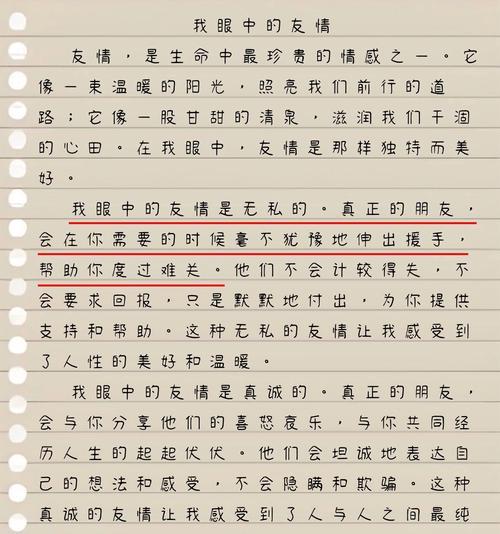 我眼中的友情
友情，是生命中最珍贵的情感之一。它
像一束温暖的阳光，照亮我们前行的道
路；它像一股甘甜的清泉，滋润我们干涸
的心田。在我眼中，友情是那样独特而美
好。
我眼中的友情是无私的。真正的朋友，
会在你需要的时候毫不犹豫地伸出援手，
帮助你度过难关。他们不会计较得失，不
会要求回报，只是默默地付出，为你提供
支持和帮助。这种无私的友情让我感受到
了人性的美好和温暖。
我眼中的友情是真诚的。真正的朋友，
会与你分享他们的喜怒哀乐，与你共同经
历人生的起起伏伏。他们会坦诚地表达自
己的想法和感受，不会隐瞒和欺骗。这种
真诚的友情让我感受到了人与人之间最纯